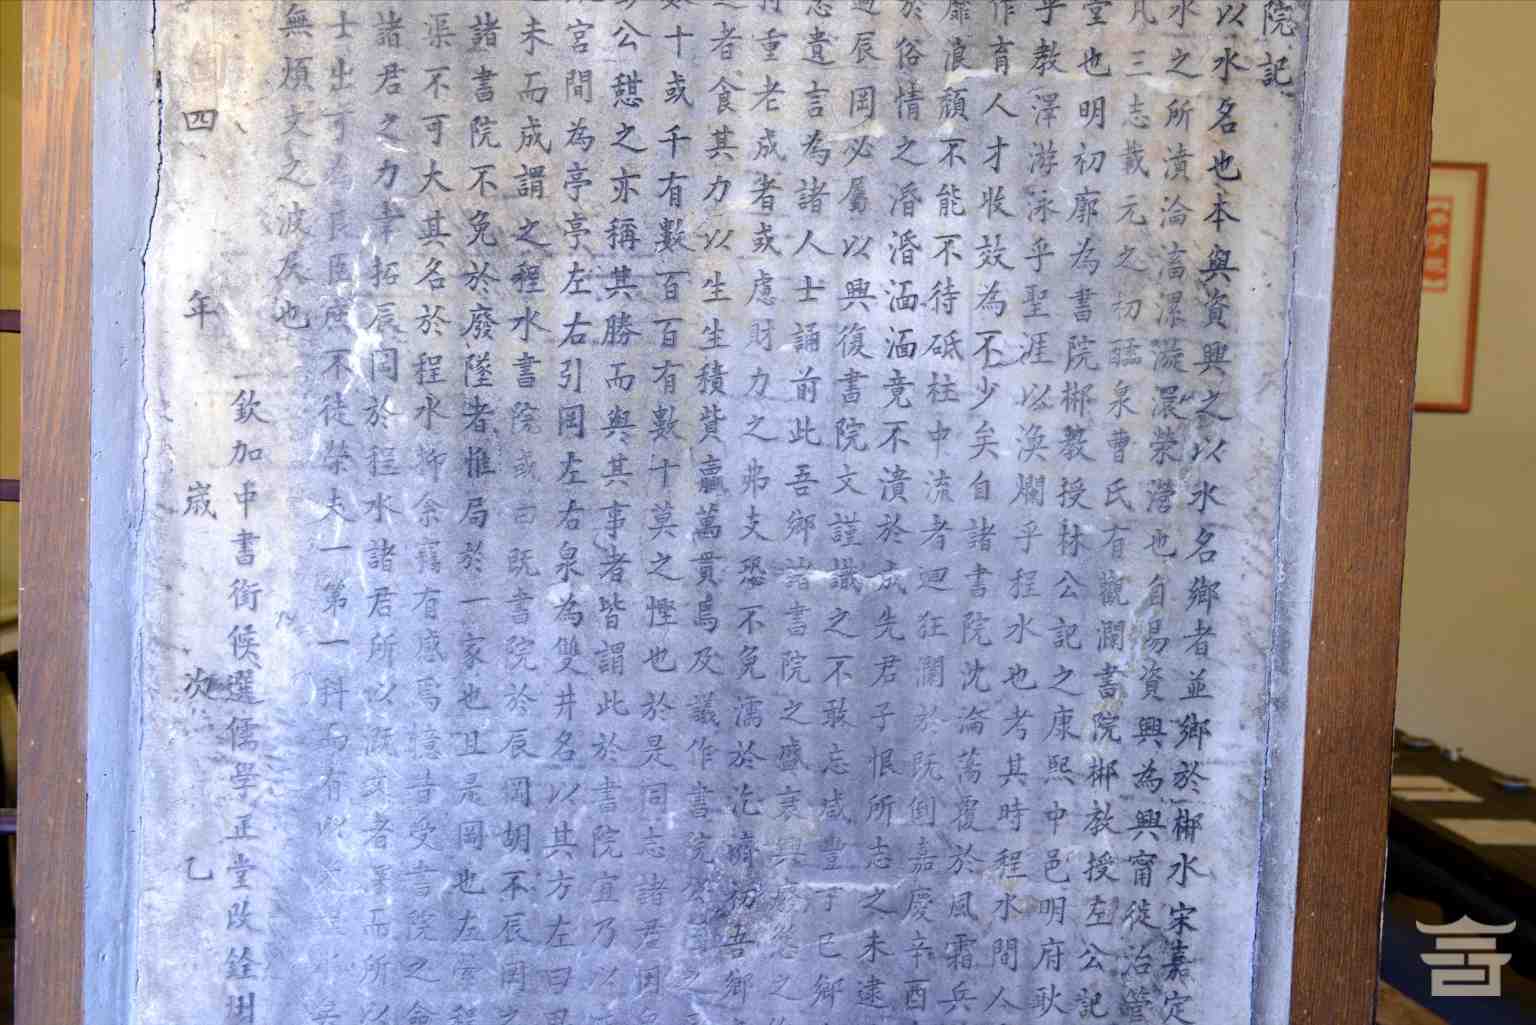 院記
以水名也本與資興之以水名鄉者並鄉於郴水宋嘉定
水之所濆淪滀漯漩澴滎瀯也自易資興為興甯徙治管
凡三志載元之初醽泉曹氏有觀瀾書院郴教授左公記
堂也明初廓為書院郴教授林公記之康熙中邑明府耿
乎教澤游泳乎聖涯以渙爛乎程水也考其時程水間人
作育人才收效為不少矣自諸書院沈淪蕩覆於風霜兵
靡浪頹不能不待砥柱中流者迴狂瀾於既倒嘉慶辛酉
於俗情之涽涽湎湎竟不潰於成先君子恨所志之未逮
辰岡必屬以興復書院文謹識之不敢忘咸豐丁巳鄉
遺言為諸人士誦前此吾鄉諸書院之盛衰興廢悉之
重老成者或慮財力之弗支恐不免濡於汔濟初吾鄉
者食其力以生生積貲贏萬貫焉及議作書院
十或千有數百百有數十莫之慳也於是同志諸君因
公憇之亦稱其勝而與其事者皆謂此於書院宜乃以
宮間為亭亭左右引岡左右泉為雙井名以其方左曰
未而成謂之程水書院或曰既書院於辰岡胡不辰岡之
諸書院不免於廢墜者惟局於一家也且是岡也左
渠不可大其名於程水抑余竊有感焉憶昔受書院之命
諸君之力幸拓辰岡於程水諸君所以 者 而所以
士出可為良臣庶不徒榮夫一第一科而有以
無煩文之波尻也
欽加中書銜候選儒學正堂改銓州
四年歲次乙